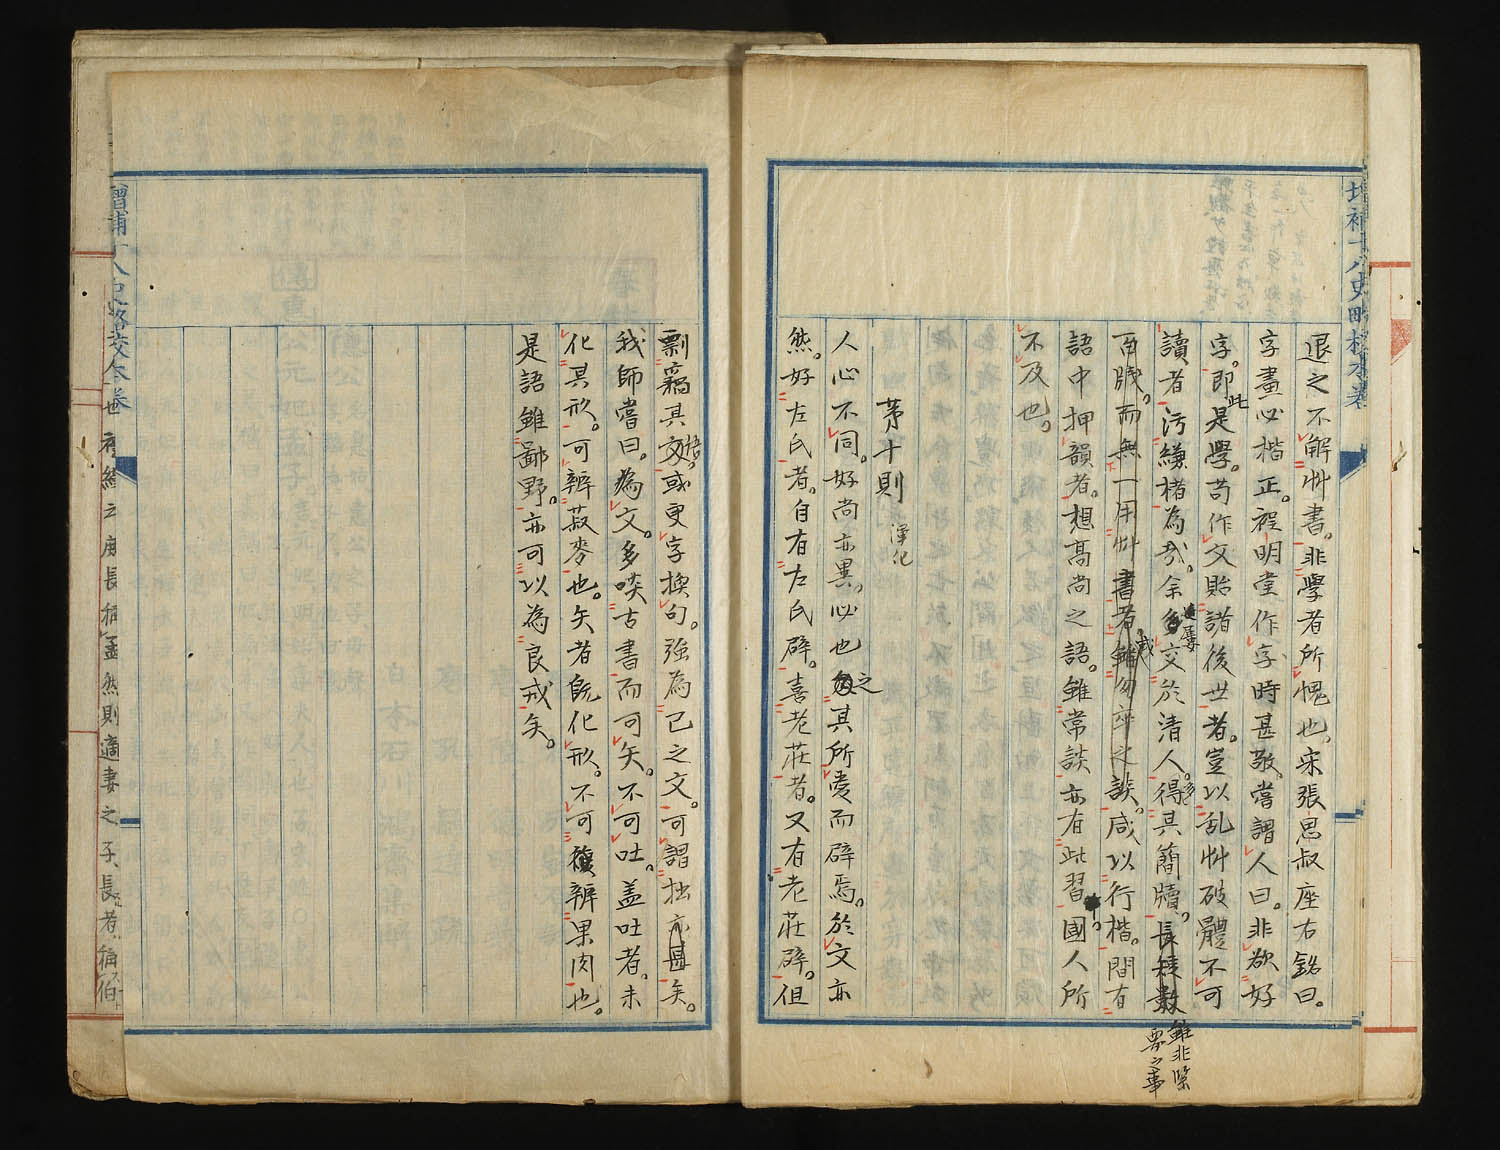 退之不解艸書。非學者所愧也。宋張思叔座右銘曰。
字畫必楷正。程明堂作字時甚敬。嘗謂人曰。非欲好
字。即此是學。苟作文貽諸後世者。豈以乱艸破體不可
讀者。汚縑楮為哉。余多交於清人。得其簡牘。長短數
百牋。而無一用艸書者。雖匆卒之談。咸以行楷。間有
語中押韻者。想高尚之語。雖常談亦有此習。國人所
不及也。
第十則
人心不同。好尚亦異。必也之其所愛而辟焉。於文亦
然。好左氏者。自有左氏辟。喜老莊者。又有老莊辟。但
剽竊其文。或更字換句。強為己之文。可謂拙亦甚矣。
我師嘗曰。為文。多啖古書而可矣。不可吐。盖吐者。未
化其形。可辨菽麥也。矢者既化形。不可復辨果肉也。
是語雖鄙野。亦可以為良戒矣。
雖非緊
要之事